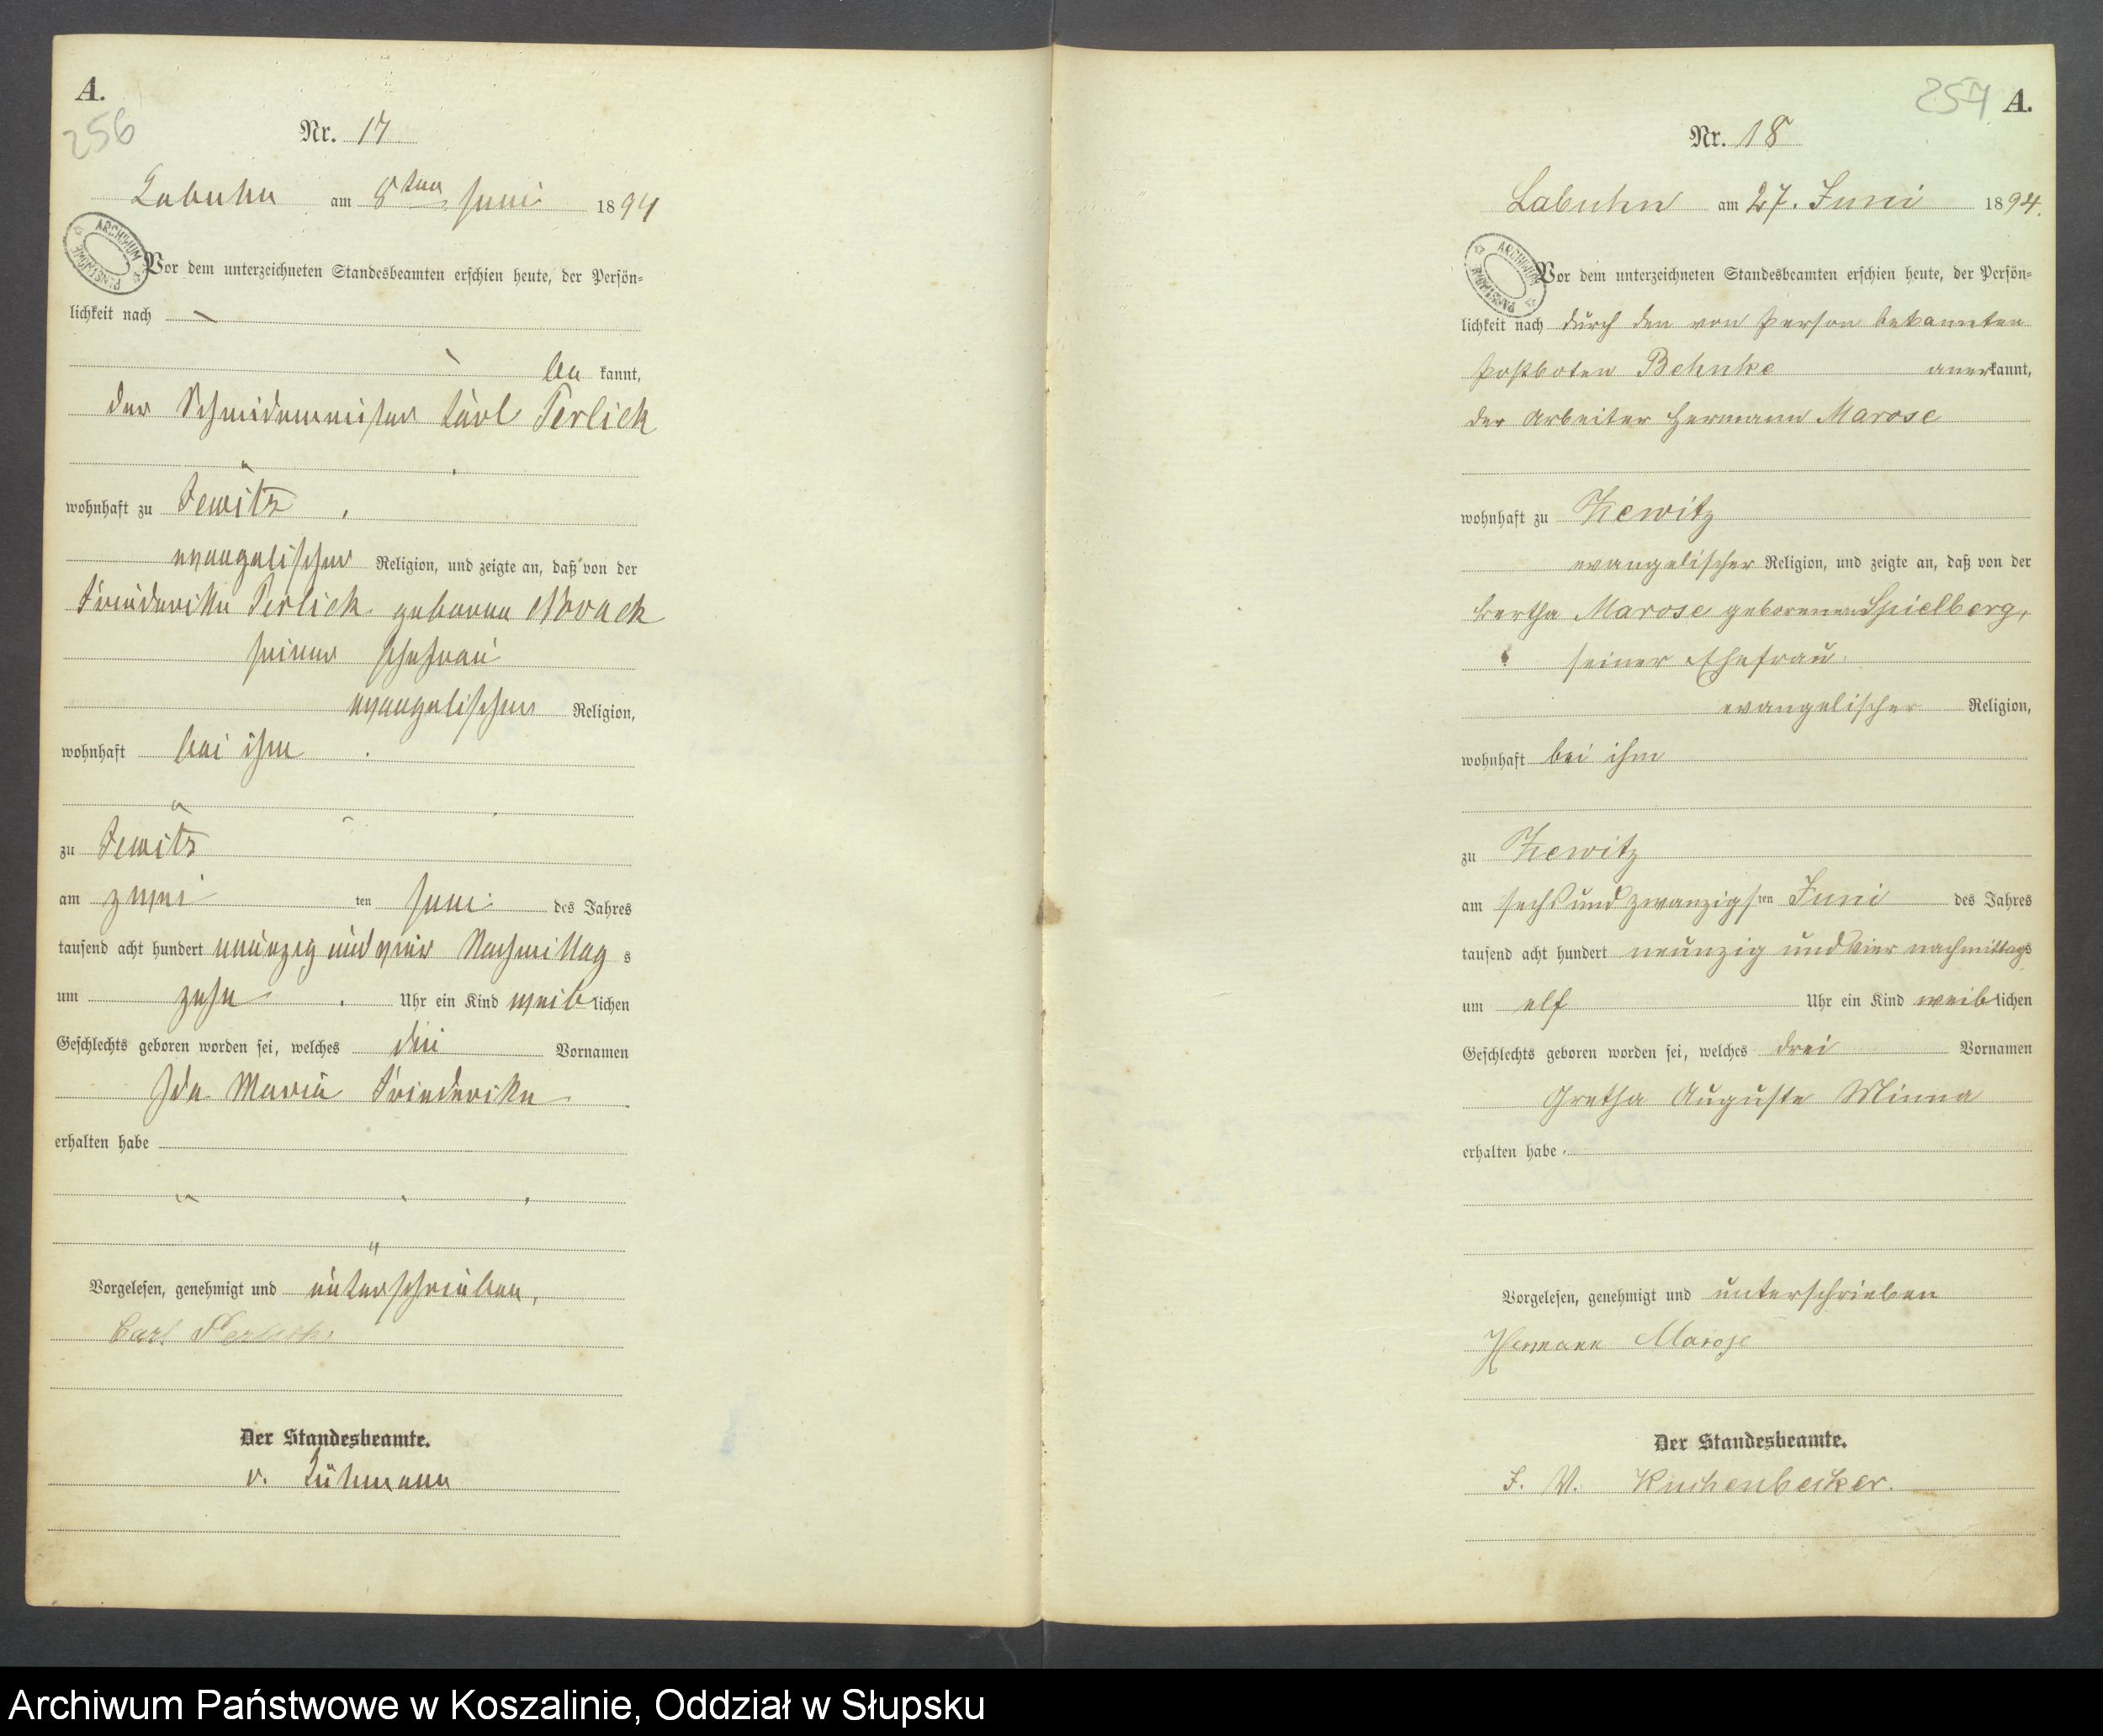 A.
256
Nr. 17
Labuhn am 8ten Juni 1894
ARCHIWUM PAŃSTWOWE
Vor dem unterzeichneten Standesbeamten erschien heute, der Persön-
lichkeit nach
be kannt,
der Schmiedemeister Carl Perlick
wohnhaft zu
evangelischer Religion, und zeigte an, daß von der
Friederike Perlick geborene
seiner Ehefrau
evangelischer Religion,
wohnhaft bei ihm
zu
am zwei ten Juni des Jahres
tausend acht hundert neunzig und vier Nachmittag s
um zehn Uhr ein Kind weib lichen
Geschlechts geboren worden sei, welches die Vornamen
Ida Maria Friederike
erhalten habe
Vorgelesen, genehmigt und unterschrieben,
Carl Perlick
Der Standesbeamte.
v.
257 A.
Nr. 18
Labuhn am 27. Juni 1894.
ARCHIWUM PAŃSTWOWE
Vor dem unterzeichneten Standesbeamten erschien heute, der Persön-
lichkeit nach durch den von Person bekannten
Postboten Behnke anerkannt,
der Arbeiter Hermann Marose
wohnhaft zu Zewitz
evangelischer Religion, und zeigte an, daß von der
Bertha Marose geborenen Spielberg,
seiner Ehefrau
evangelischer Religion,
wohnhaft bei ihm
zu Zewitz
am sechsundzwanzigsten Juni des Jahres
tausend acht hundert neunzig und vier nachmittags
um elf Uhr ein Kind weiblichen
Geschlechts geboren worden sei, welches drei Vornamen
Gretha Auguste Minna
erhalten habe
Vorgelesen, genehmigt und unterschrieben
Hermann Marose
Der Standesbeamte.
J. V. Kuchenbecker.
Archiwum Państwowe w Koszalinie, Oddział w Słupsku